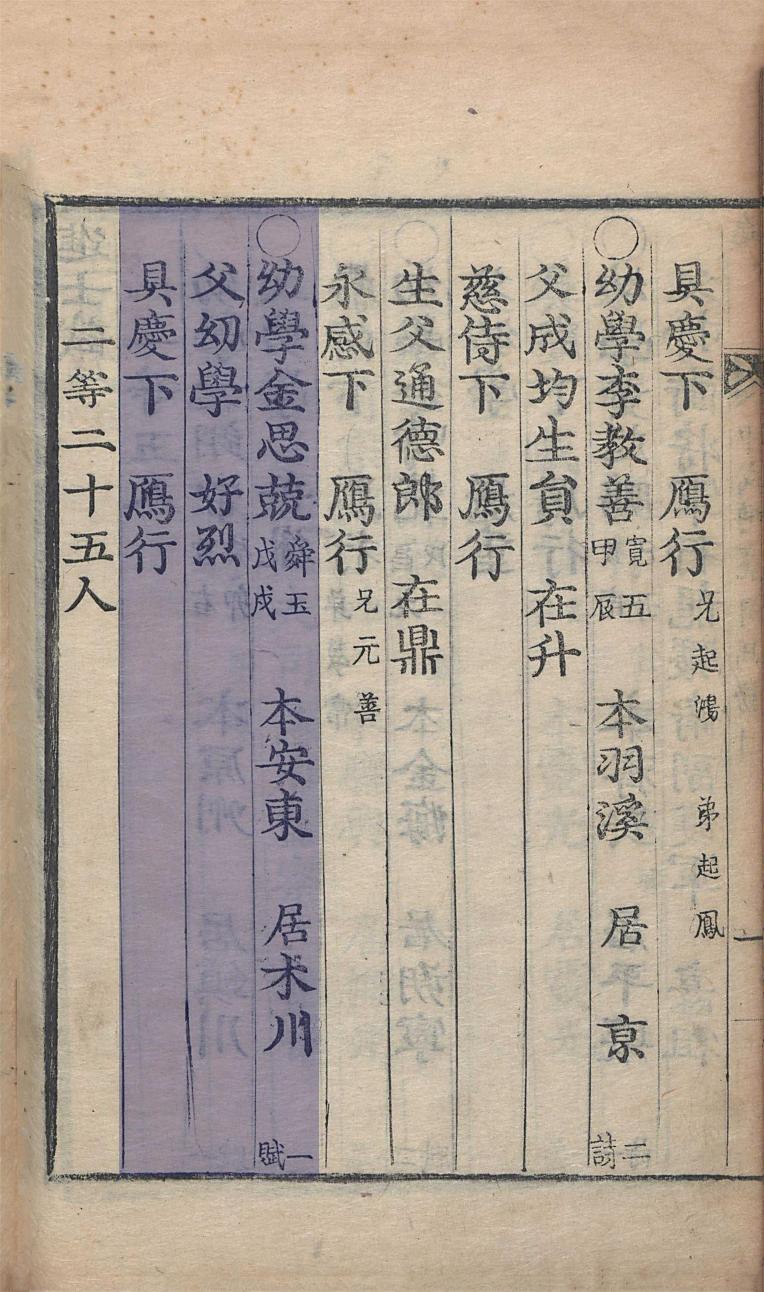 具慶下 鴈行 兄起鴻 弟起鳳
○幼學李敎善 寬五 甲辰 本羽溪 居京 二詩
父成均生員 在升
慈侍下 鴈行
生父通德郎 在鼎
永感下 鴈行 兄元善
○幼學金思兢 舜玉 戊戌 本安東 居木川 一賦
父幼學 好烈
具慶下 鴈行
二等二十五人